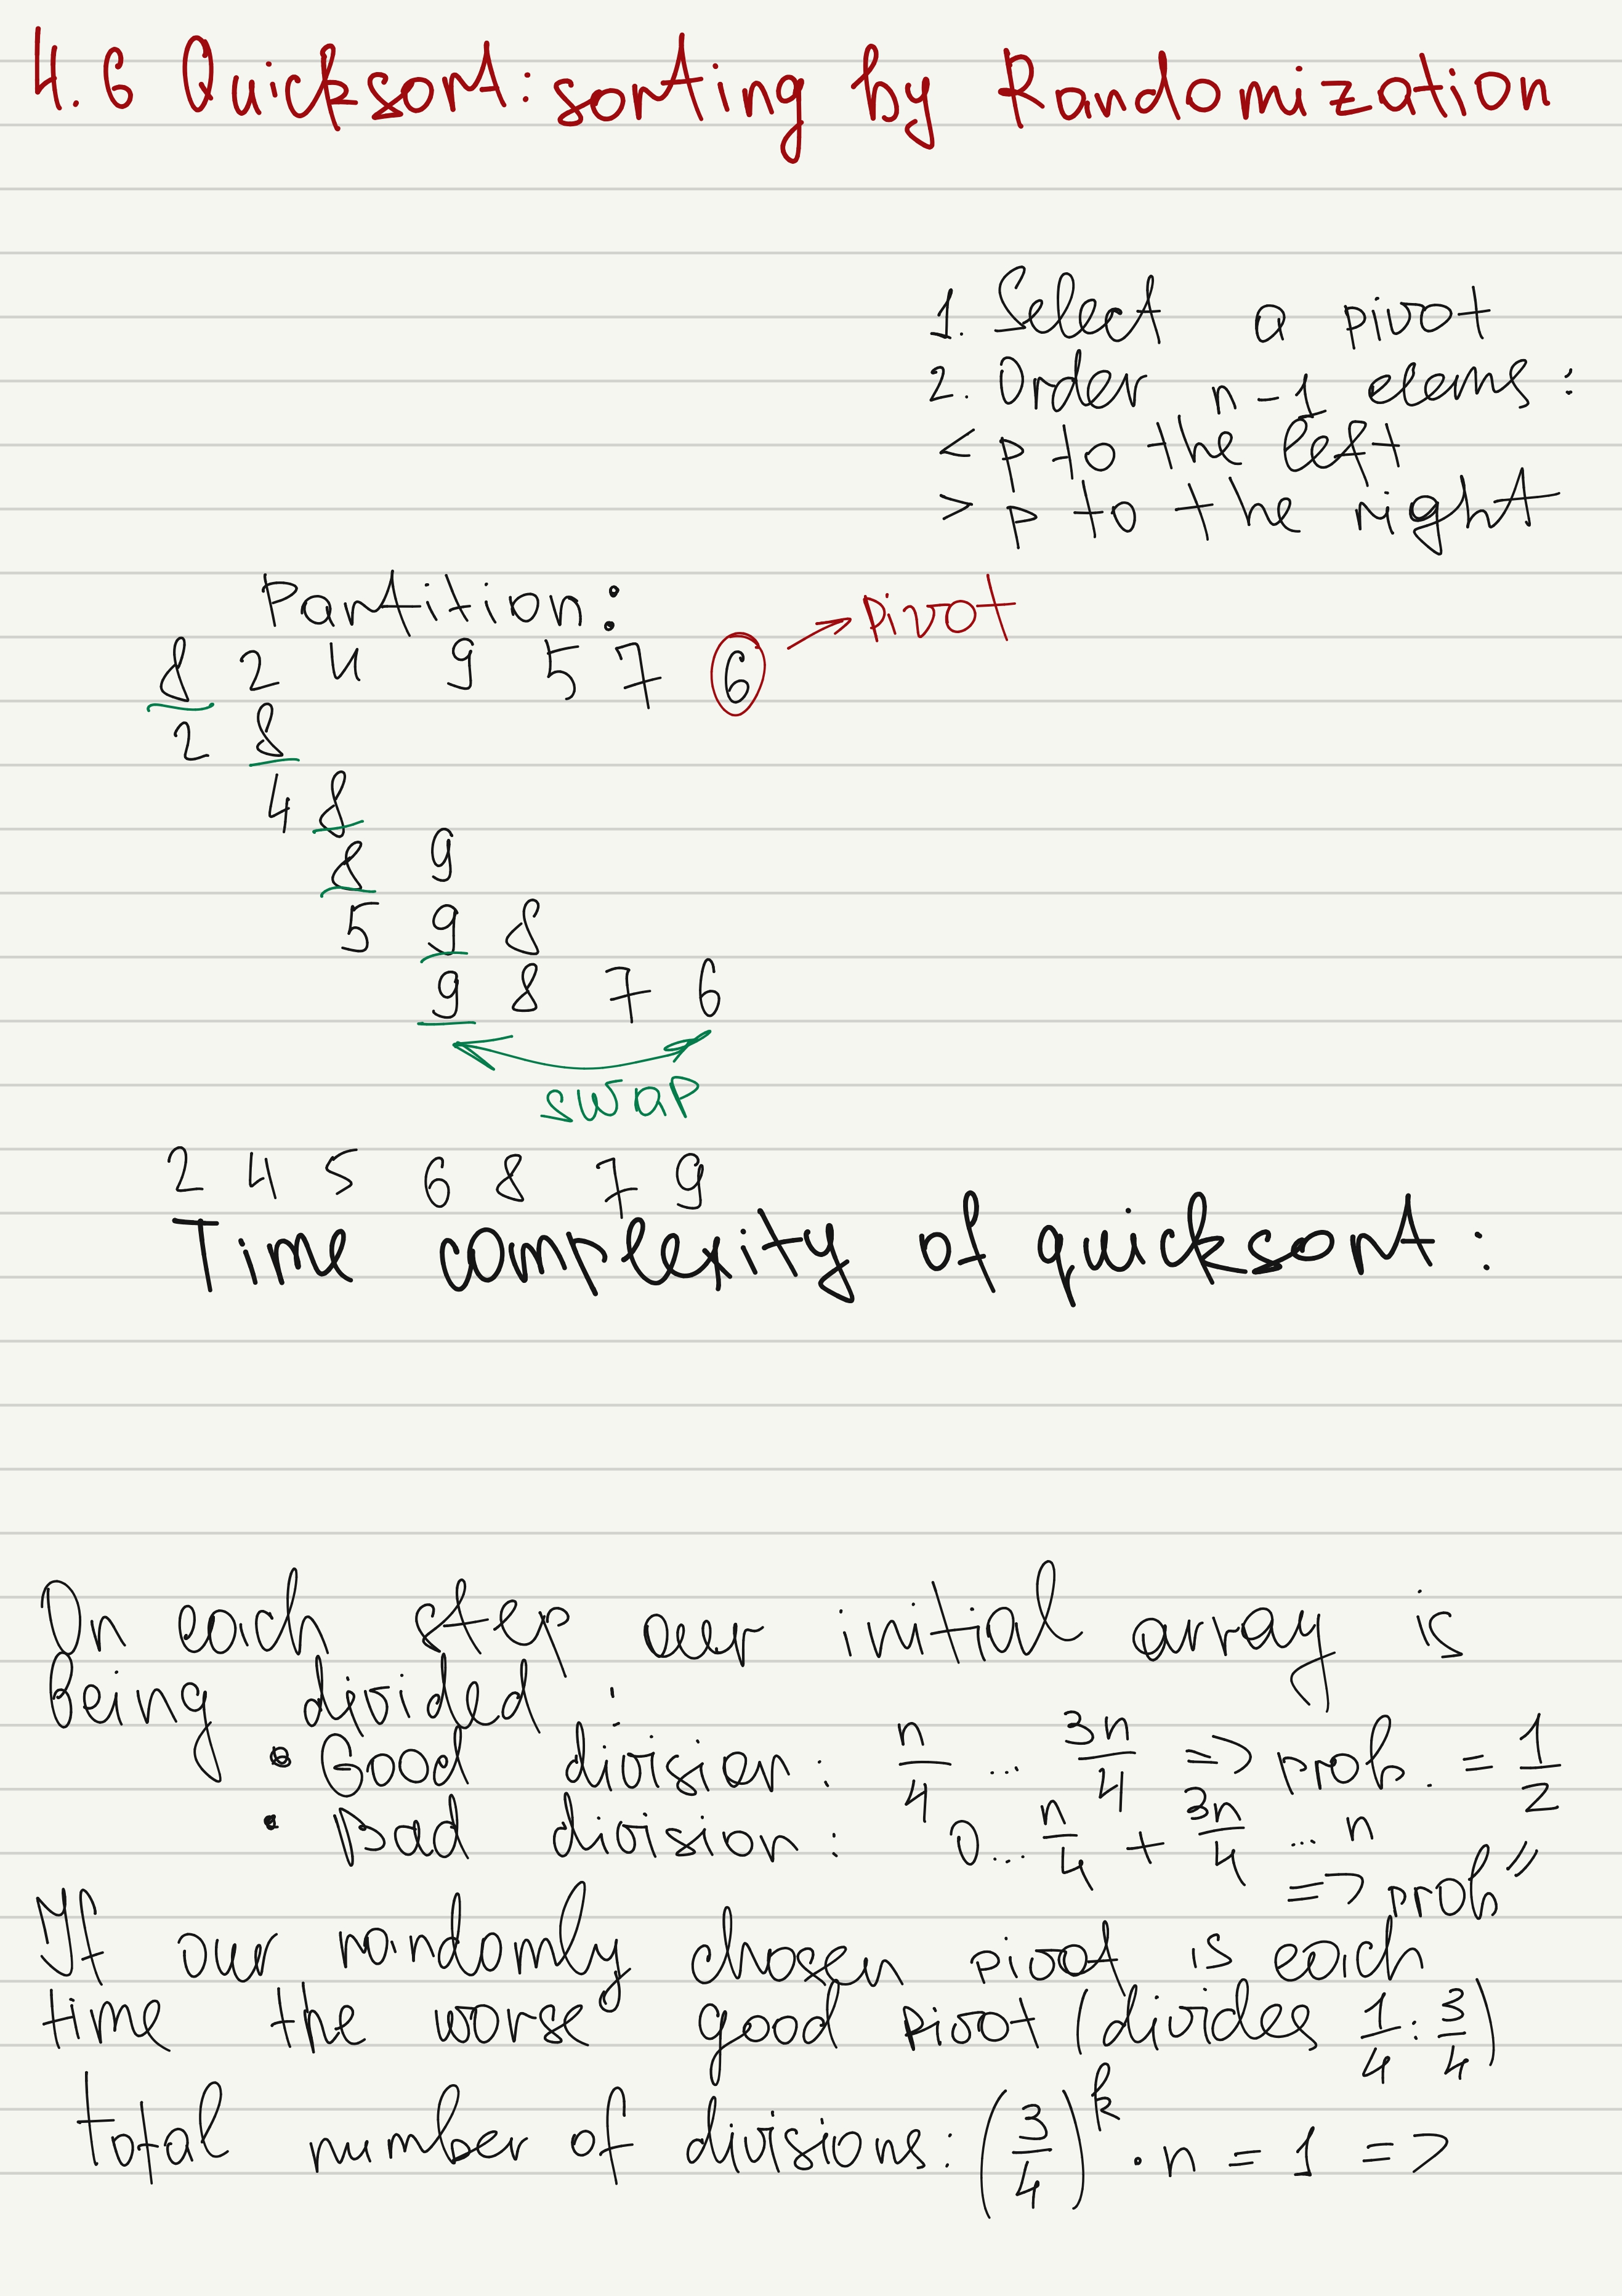 4.6 Quicksort: sorting by Randomization
1. Select a pivot
2. Order n-1 elems:
< p to the left
> p to the right
Partition:
8 2 4 9 5 7 6 → pivot
2 8
4 8
8 9
5 9 8
9 8 7 6
swap
2 4 5 6 8 7 9
Time complexity of quicksort:
On each step our initial array is
being divided:
• Good division: n/4 ... 3n/4 => prob. = 1/2
• Bad division: 0... n/4 + 3n/4 ... n
=> prob "
If our randomly chosen pivot is each
time the worse good pivot (divides 1/4 : 3/4)
total number of divisions: (3/4)^k · n = 1 =>